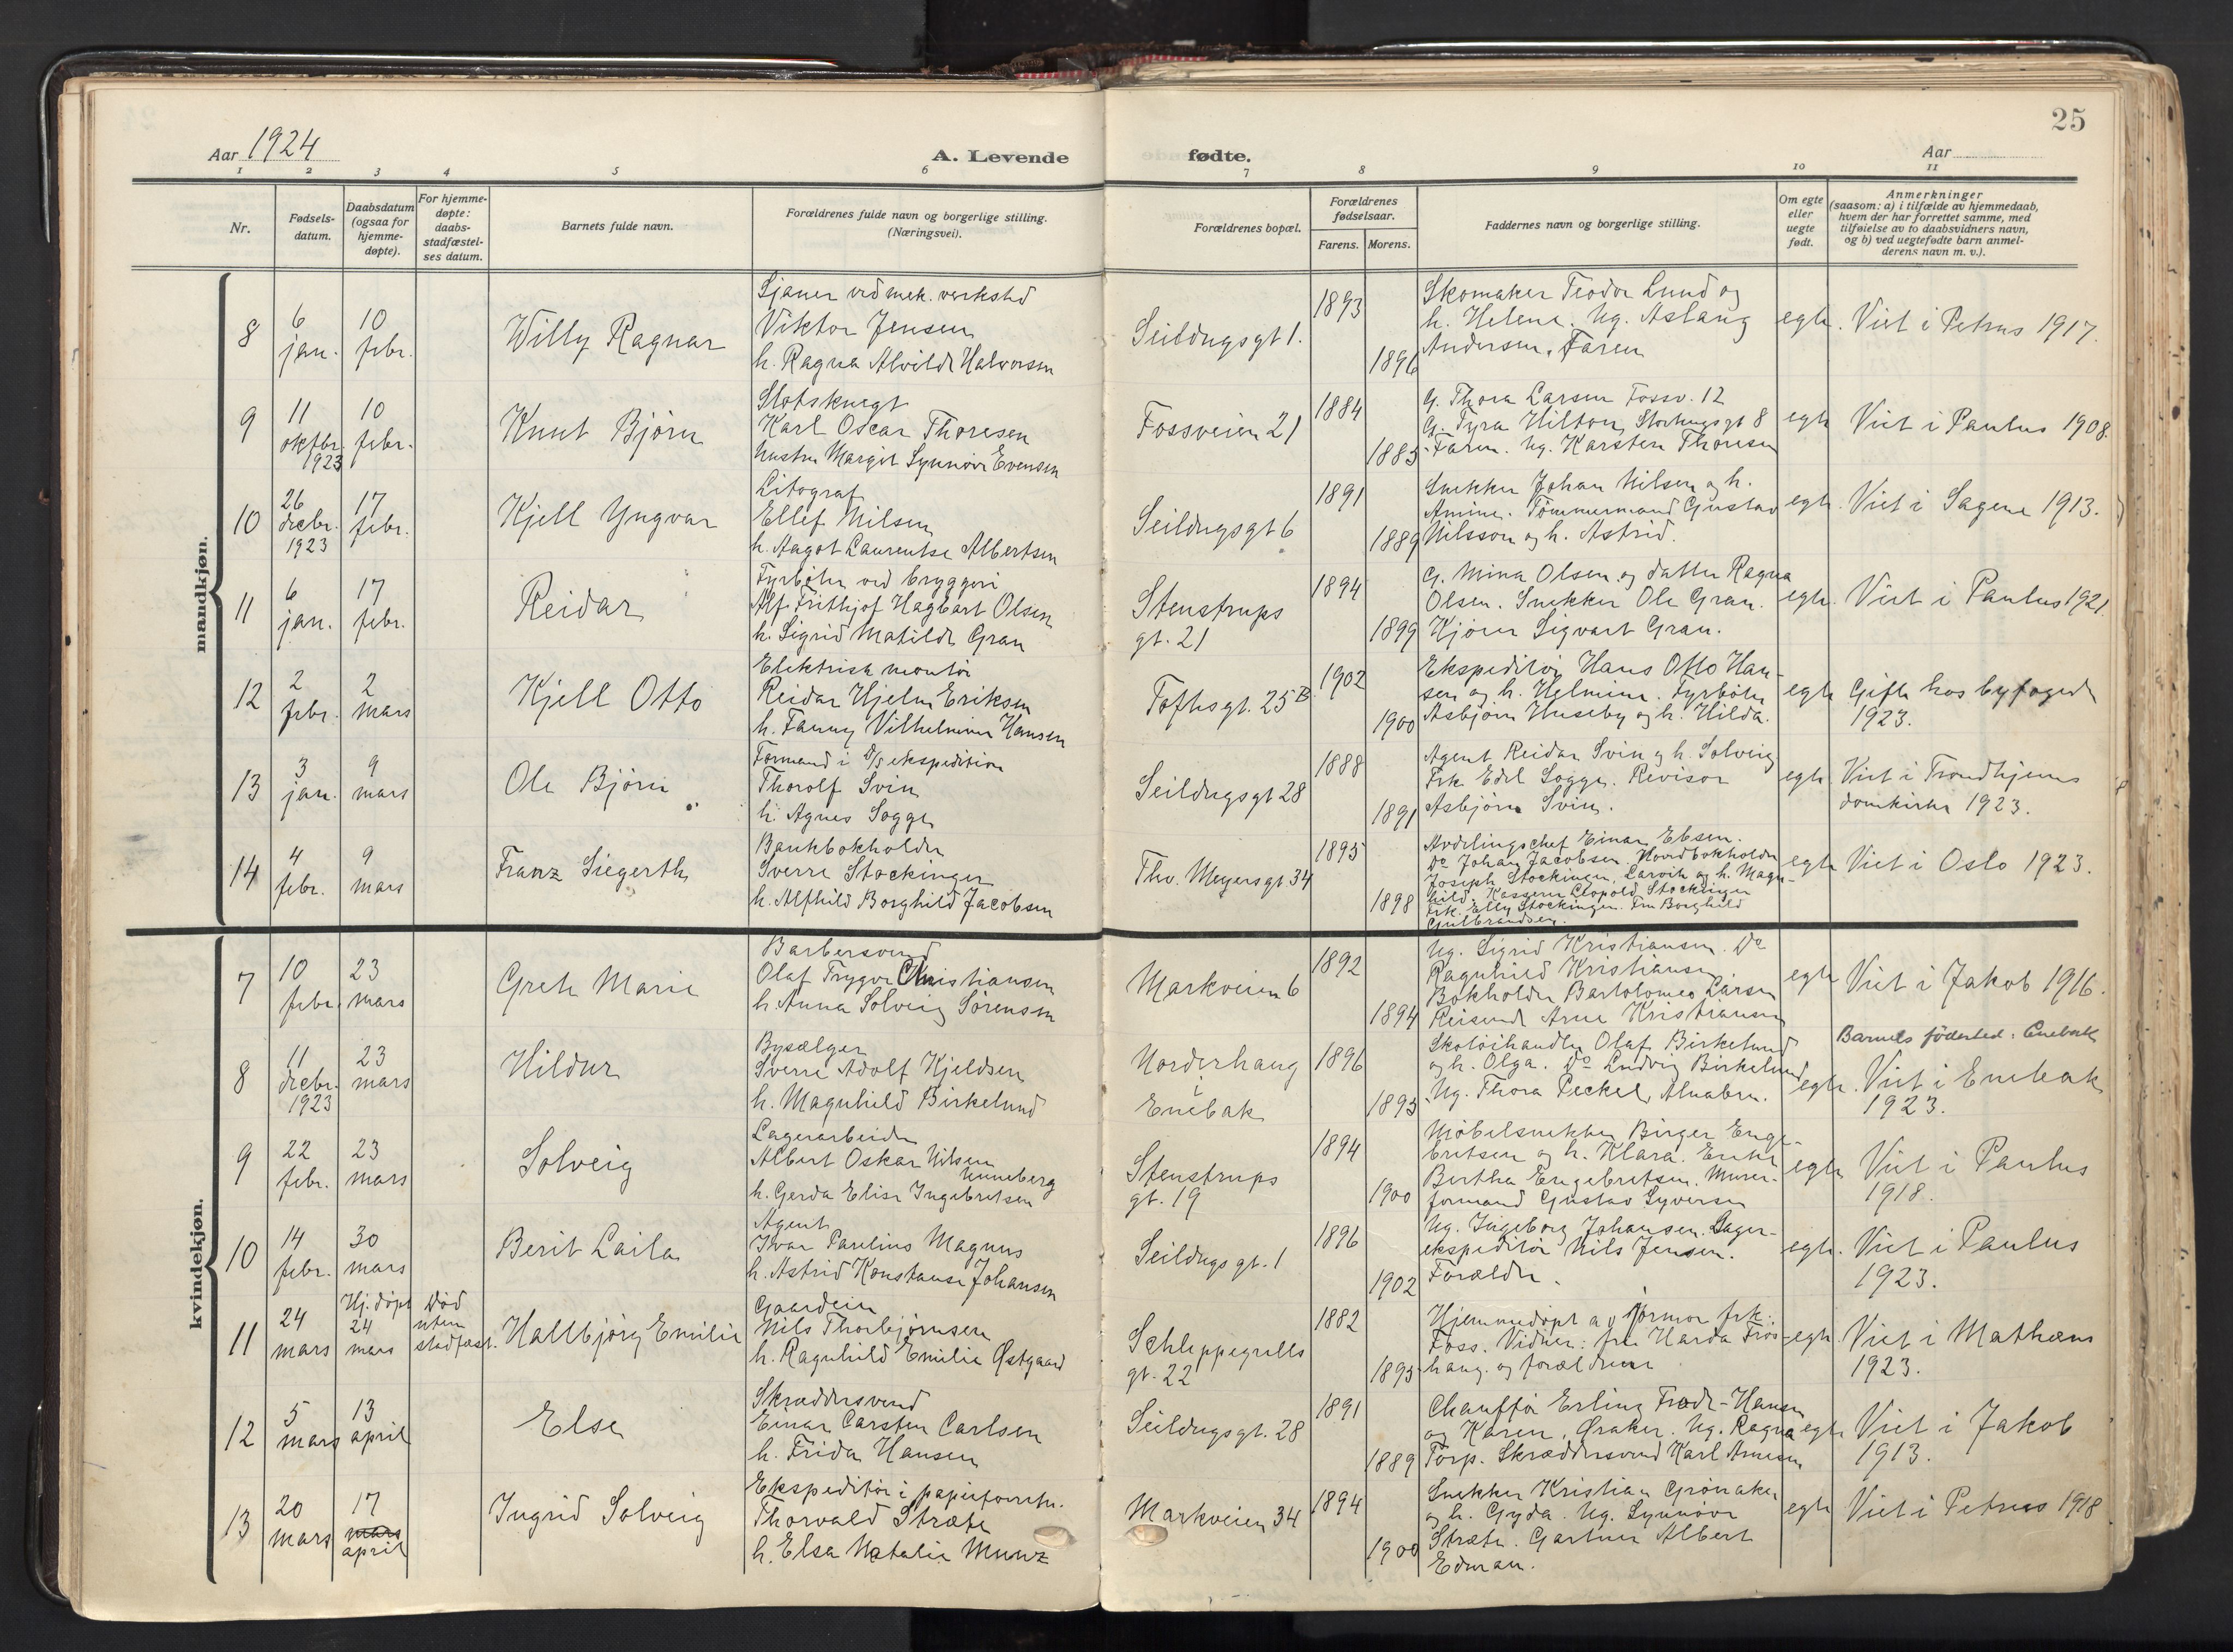 25
Aar 1924
A. Levende
fødte.
Aar
1 2 3 4 5 6 7 8 9 10 11
Nr.
Fødsels-
datum.
Daabsdatum
(ogsaa for
hjemme-
døpte).
For hjemme-
døpte:
daabs-
stadfæstel-
ses datum.
Barnets fulde navn.
Forældrenes fulde navn og borgerlige stilling.
(Næringsvei).
Forældrenes bopæl.
Forældrenes
fødselsaar.
Farens. Morens.
Faddernes navn og borgerlige stilling.
Om egte
eller
uegte
født.
Anmerkninger
(saasom: a) i tilfælde av hjemmedaab,
hvem der har forrettet samme, med
tilføielse av to daabsvidners navn,
og b) ved uegtefødte barn anmel-
derens navn m. v.).
mandkjøn.
8
6
jan.
10
febr.
Willy Ragnar
Sjauer ved mek. verksted
Viktor Jensen
h. Ragna Alvilde Halvorsen
Seildugsgt 1.
1893
1896
Skomaker Teodor Lund og
h. Helene. Ug. Aslaug
Andersen. Faren
egte.
Viet i Petrus 1917.
9
11
oktbr.
1923
10
febr.
Knut Bjørn
Slotsknegt
Karl Oscar Thoresen
hustru Margit Synnøve Evensen
Fossveien 21
1884
1885
G. Thora Larsen Fossv. 12
G. Fyra Hilton, Stortingsgt 8
Faren. Ug. Karsten Thoresen
egte
Viet i Paulus 1908.
10
26
decbr.
1923
17
febr.
Kjell Yngvar
Litograf
Ellef Nilsen
h. Aagot Laurentse Albertsen
Seildugsgt 6
1891
1889
Snekker Johan Nilsen og h.
Amine. Tømmermand Gustav
Nilsson og h. Astrid.
egte.
Viet i Sagene 1913.
11
6
jan.
17
febr.
Reidar
Fyrbøter ved bryggeri
Alf Frithjof Hagbart Olsen
h. Sigrid Matilde Gran
Stenstrups
gt. 21
1894
1899
G. Mina Olsen og datter Ragna
Olsen. Snekker Ole Gran.
Kjører Sigvart Gran.
egte.
Viet i Paulus 1921
12
2
febr.
2
mars
Kjell Otto
Elektrisk montør
Reidar Hjelm Eriksen
h. Fanny Vilhelmine Hansen
Toftesgt. 25 B.
1902
1900
Ekspeditør Hans Otto Han-
sen og h. Helmine. Fyrbøter
Asbjørn Huseby og h. Hilda.
egte
Gifte hos byfoged
1923.
13
3
jan.
9
mars
Ole Bjørn
Formand i D/S ekspedition
Thorolf Svin
h. Agnes Sogge
Seildugsgt 28
1888
1891
Agent Reidar Svin og h. Solveig
Frk. Edel Sogge. Revisor
Asbjørn Svin.
egte.
Viet i Trondhjems
domkirke 1923.
14
4
febr.
9
mars
Franz Siegerth
Bankbokholder
Sverre Stockinger
h. Alfhild Borghild Jacobsen
Thv. Meyersgt 34
1895
1898
Avdelingschef Einar Ebsen.
Do Johan Jacobsen. Hovedbokholder
Joseph Stockinger, Larvik og h. Magn-
hild. Kasserer Leopold Stockinger
Frk. Elly Stockinger. Fru Borghild
Gulbrandsen.
egte
Viet i Oslo 1923.
kvindekjøn.
7
10
febr.
23
mars
Grete Marie
Barbersvend
Olaf Trygve Christiansen
h. Anna Solveig Sørensen
Markveien 6
1892
1894
Ug. Sigrid Kristiansen. Do
Ragnhild Kristiansen
Bokholder Bartolomeo Larsen
Reisende Arne Kristiansen
egte
Viet i Jakob 1916.
8
11
decbr.
1923
23
mars
Hildur
Bysælger
Sverre Adolf Kjeldsen
h. Magnhild Birkelund
Norderhaug
i
Enebak
1896
1895
Skotøihandler Olaf Birkelund
og h. Olga. Do Ludvig Birkelund
Ug. Thora Peckel, Alnabru.
egte.
Barnets fødested: Enebak
Viet i Enebak
1923.
9
22
febr.
23
mars
Solveig
Lagerarbeider
Albert Oskar Nilsen
Unneberg
h. Gerda Elise Ingebretsen
Stenstrups
gt. 19
1894
1900
Møbelsnekker Birger Enge-
bretsen og h. Klara. Enke
Bertha Engebretsen. Murer-
formand Gustav Syversen
egte
Viet i Paulus
1918.
10
14
febr.
30
mars
Berit Laila
Agent
Ivar Paulius Magnus
h. Astrid Konstanse Johansen
Seildugsgt. 1
1896
1902
Ug. Ingeborg Johansen. Lager-
ekspeditør Nils Jensen.
Forældre.
egte.
Viet i Paulus
1923.
11
24
mars
Hj. døpt
24
mars
Død
uten
stadfæst.
Hallbjørg Emilie
Gaardeier
Nils Thorbjørnsen
h. Ragnhild Emilie Østgaard
Schleppegrells
gt. 22
1882
1895
Hjemmedøpt av jormor frk.
Foss. Vidner: fru Harda Fros-
haug. og forældrene
egte.
Viet i Mathæus
1923.
12
5
mars
13
april
Else
Skræddersvend
Einar Carsten Carlsen
h. Frida Hansen
Seildugsgt. 28
1891
1889
Chauffør Erling Frode-Hansen
og Karen, Øraker. Ug. Ragna
Torp. Skræddersvend Karl Arnesen
egte
Viet i Jakob
1913.
13
20
mars
17
mars
april
Ingrid Solveig
Ekspeditør i papirforretn.
Thorvald Stræte
h. Elsa Natalie Munz
Markveien 34
1894
1900
Snekker Kristian Grönaker
og h. Gyda. Ug. Synnøve
Stræte. Gartner Albert
Edman.
egte
Viet i Petrus 1918